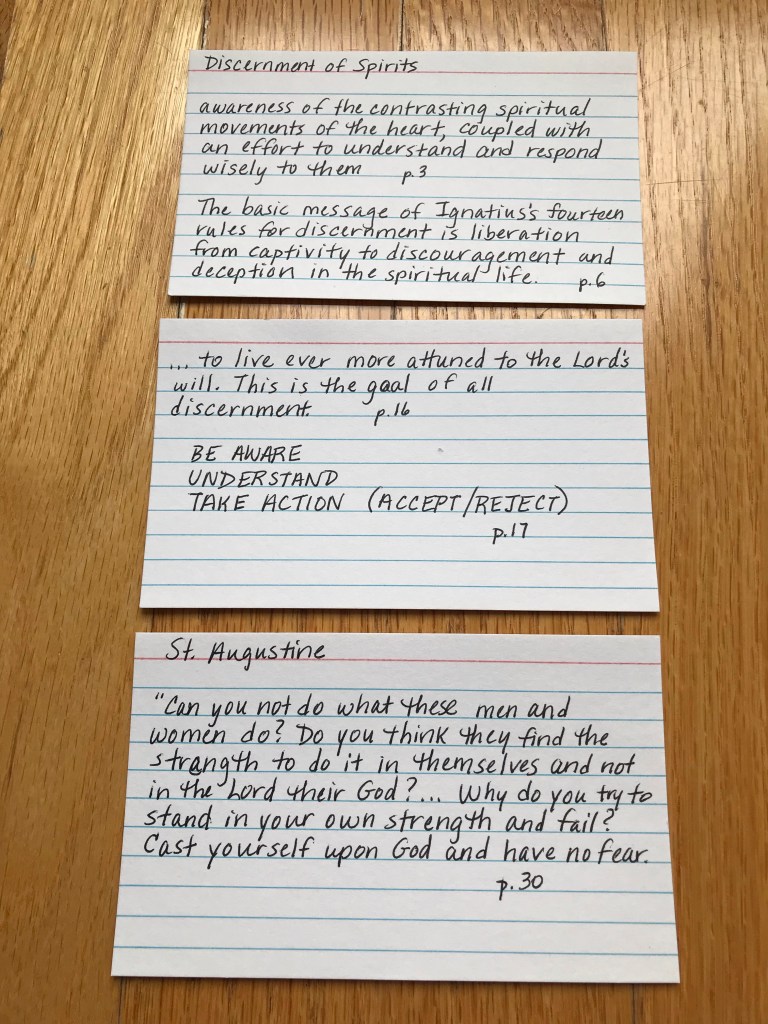 Discernment of Spirits
awareness of the contrasting spiritual
movements of the heart, coupled with
an effort to understand and respond
wisely to them p.3
The basic message of Ignatius's fourteen
rules for discernment is liberation
from captivity to discouragement and
deception in the spiritual life. p.6
... to live ever more attuned to the Lord's
will. This is the goal of all
discernment. p.16
BE AWARE
UNDERSTAND
TAKE ACTION (ACCEPT/REJECT)
p.17
St. Augustine
"Can you not do what these men and
women do? Do you think they find the
strength to do it in themselves and not
in the Lord their God?... Why do you try to
stand in your own strength and fail?
Cast yourself upon God and have no fear.
p.30